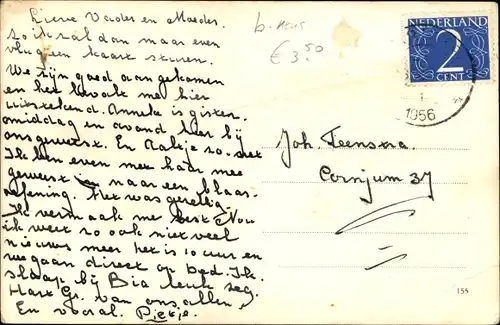 Lieve Vader en Moeder.
zo ik zal dan maar even
vlug een kaart sturen.
We zijn goed aangekomen
en het bevalt me hier
uitstekend. Anneke is gister-
middag en avond hier bij
ons geweest. En Baktje zo-
Ik ben even met haar mee
geweest en naar een blaas-
oefening. Het was gezellig.
Ik vermaak me best. Nou
ik weet zo ook niet veel
nieuws meer het is 10 uur en
we gaan direct op bed. Ik
slaap bij Bia leuk zeg.
Hart. Gr. van ons allen
En vooral. Pietje.
b-
€ 3.50
NEDERLAND
2
CENT
1956
Joh. Feenstra.
Cornjum 37
155